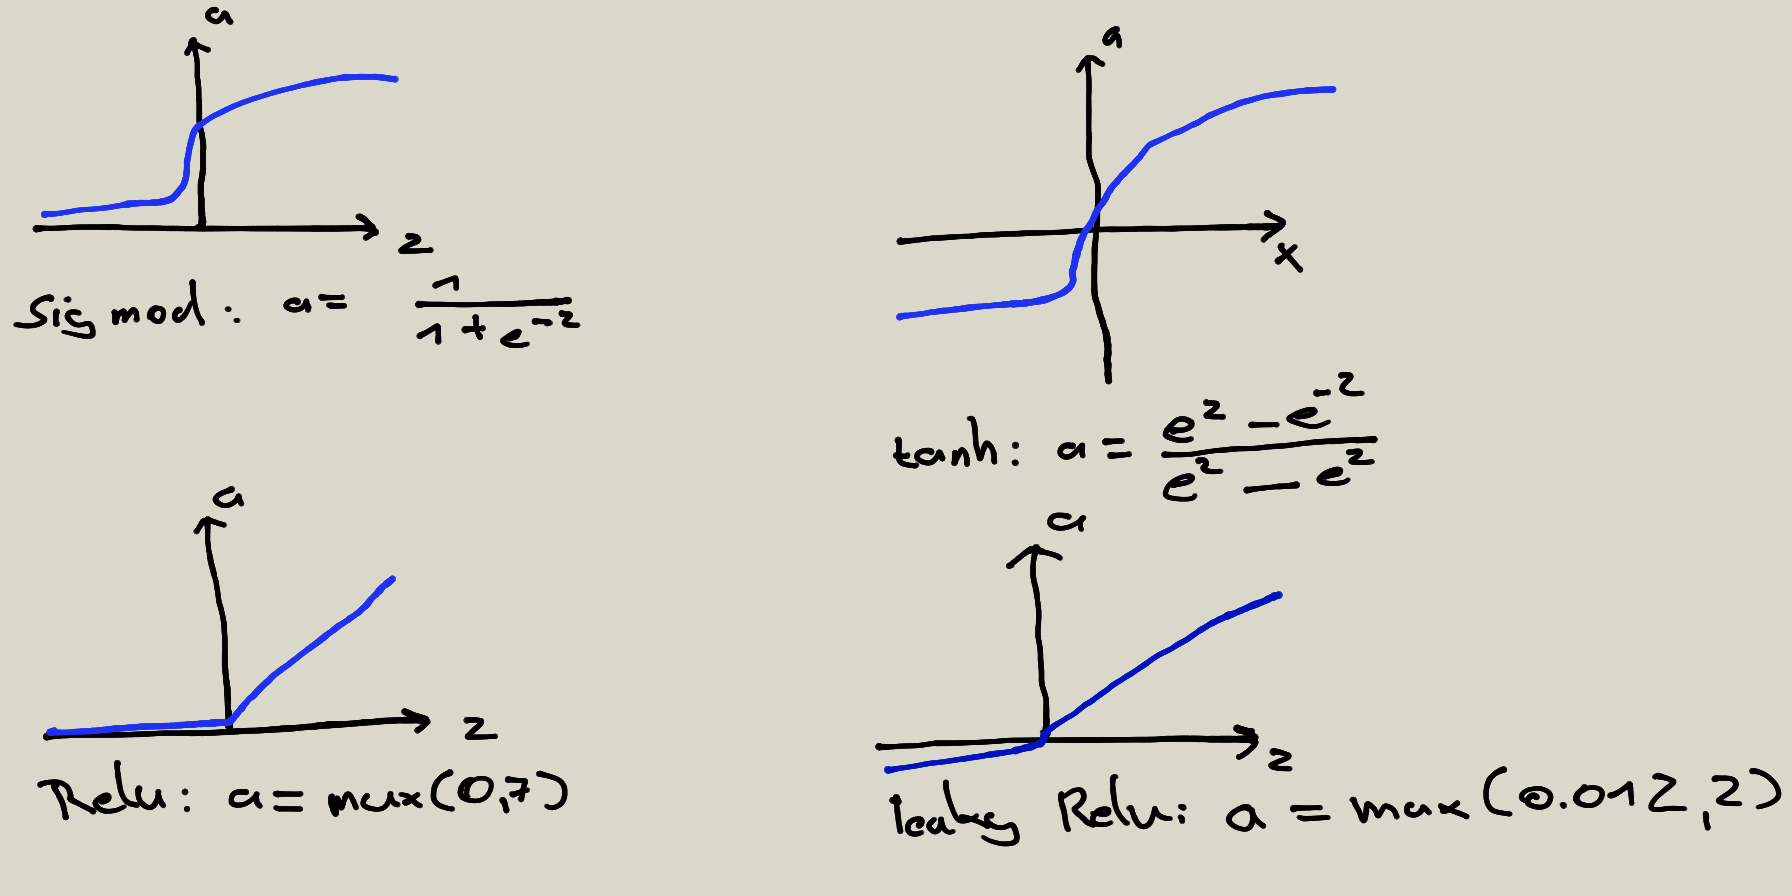 a
z
Sigmod: a = 1 / 1 + e^-z
a
x
tanh: a = e^z - e^-z / e^z - e^z
a
z
Relu: a = max(0,7)
a
z
leaky Relu: a = max(0.01z,z)